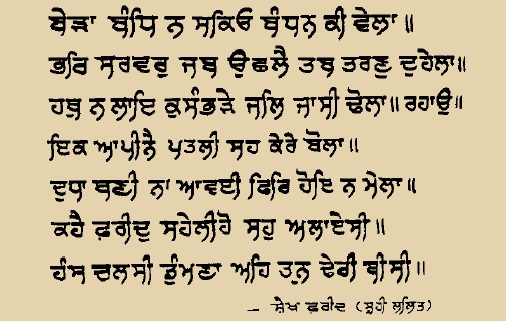 ਬੇੜਾ ਬੰਧਿ ਨ ਸਕਿਓ ਬੰਧਨ ਕੀ ਵੇਲਾ ॥
ਭਰਿ ਸਰਵਰੁ ਜਬ ਉਛਲੈ ਤਬ ਤਰਣੁ ਦੁਹੇਲਾ ॥
ਹਥੁ ਨ ਲਾਇ ਕੁਸੰਭੜੇ ਜਲਿ ਜਾਸੀ ਢੋਲਾ ॥ ਰਹਾਉ ॥
ਇਕ ਆਪੀਨੈ ਪਤਲੀ ਸਹ ਕੇਰੇ ਬੋਲਾ ॥
ਦੁਧਾ ਥਣੀ ਨਾ ਆਵਈ ਫਿਰਿ ਹੋਇ ਨ ਮੇਲਾ ॥
ਕਹੈ ਫ਼ਰੀਦੁ ਸਹੇਲੀਹੋ ਸਹੁ ਅਲਾਏਸੀ ॥
ਹੰਸ ਚਲਸੀ ਡੁੰਮਣਾ ਅਹਿ ਤਨੁ ਢੇਰੀ ਥੀਸੀ ॥
— ਸ਼ੇਖ ਫ਼ਰੀਦ (ਸੂਹੀ ਲਲਿਤ)